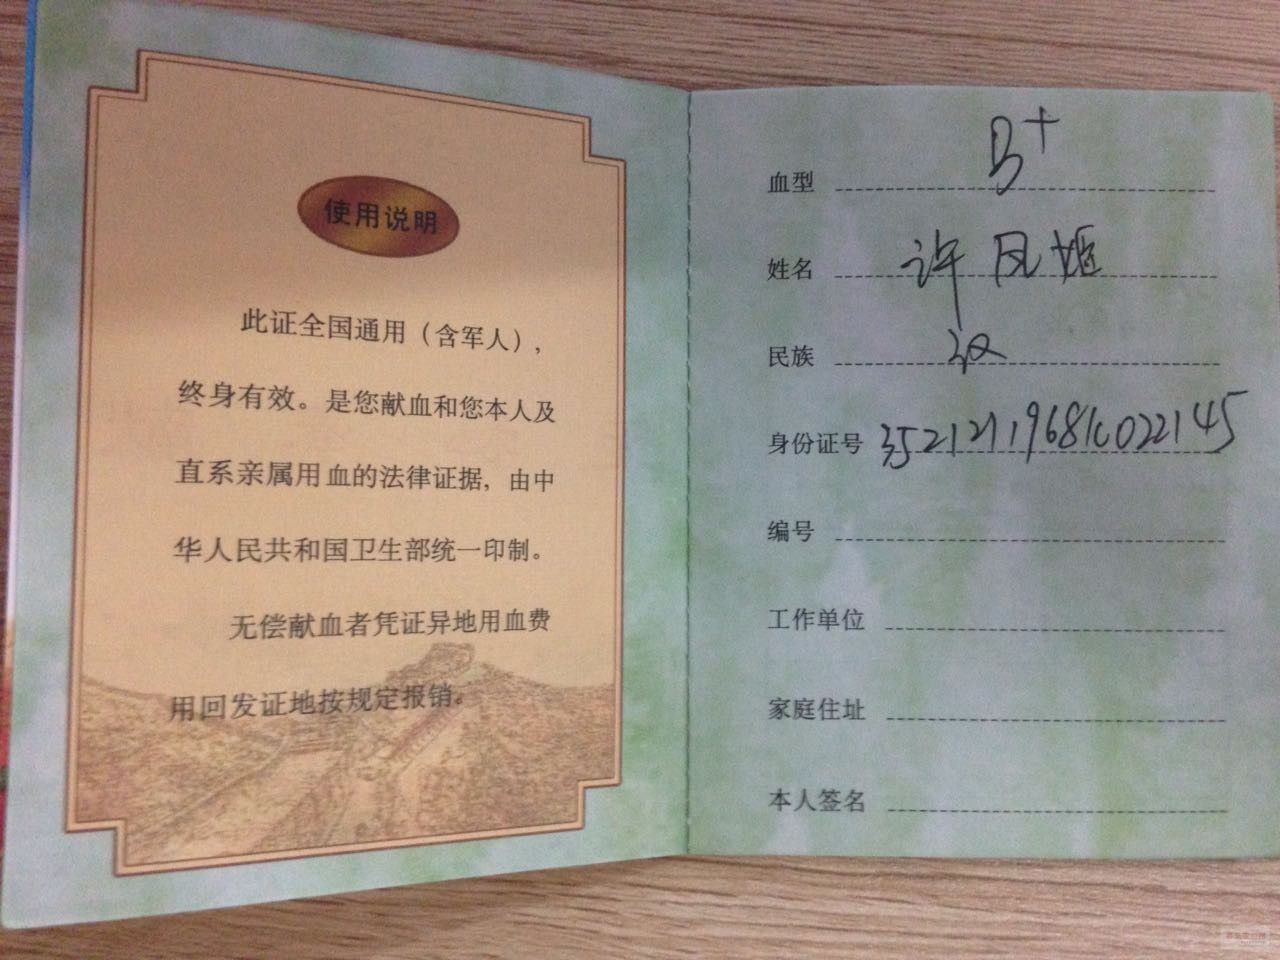 使用说明
此证全国通用（含军人），
终身有效。是您献血和您本人及
直系亲属用血的法律证据，由中
华人民共和国卫生部统一印制。
无偿献血者凭证异地用血费
用回发证地按规定报销。
血型 B+
姓名 许凤姬
民族 汉
身份证号 352121196810022145
编号
工作单位
家庭住址
本人签名